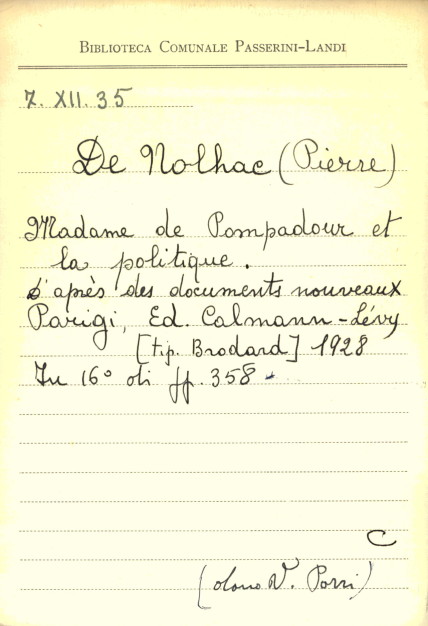 BIBLIOTECA COMUNALE PASSERINI-LANDI
7. XII. 35
De Nolhac (Pierre)
Madame de Pompadour et
la politique.
d'après des documents nouveaux
Parigi, Ed. Calmann-Lévy
[tip. Brodard] 1928
In 16° di pp. 358
C
(dono V. Porri)